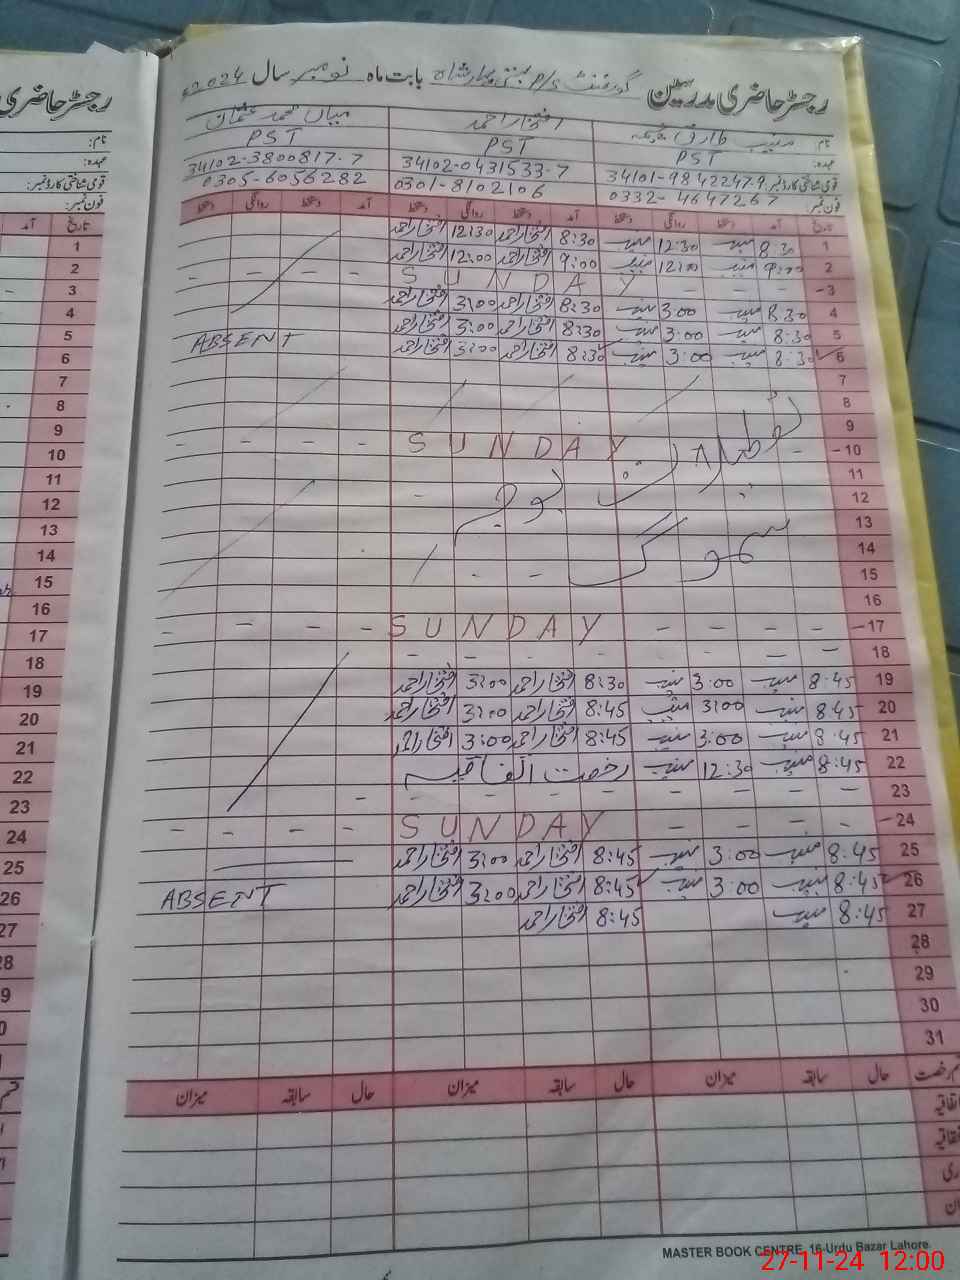 رجسٹر حاضری مدرسین گورنمنٹ P/S بستی بہار شاہ بابت ماہ نومبر سال 2024ء
نام: منیب طارق افتخار احمد میاں محمد عثمان
عہدہ: PST PST PST
قومی شناختی کارڈ نمبر: 34101-9842247-9 34102-0431533-7 34102-3800817-7
فون نمبر: 0332-4647267 0301-8102106 0305-6056282
تاریخ آمد دستخط روانگی دستخط آمد دستخط روانگی دستخط آمد دستخط روانگی دستخط
1 8:30 منیب 12:30 منیب 8:30 افتخار احمد 12:30 افتخار احمد
2 9:00 منیب 12:00 منیب 9:00 افتخار احمد 12:00 افتخار احمد
3 SUNDAY
4 8:30 منیب 3:00 منیب 8:30 افتخار احمد 3:00 افتخار احمد
5 8:30 منیب 3:00 منیب 8:30 افتخار احمد 3:00 افتخار احمد
6 8:30 منیب 3:00 منیب 8:30 افتخار احمد 3:00 افتخار احمد ABSENT
7
8
9 تعطیلات بوجہ
10 SUNDAY
11
12
13 سموگ
14
15
16
17 SUNDAY
18
19 8:45 منیب 3:00 منیب 8:30 افتخار احمد 3:00 افتخار احمد
20 8:45 منیب 3:00 منیب 8:45 افتخار احمد 3:00 افتخار احمد
21 8:45 منیب 3:00 منیب 8:45 افتخار احمد 3:00 افتخار احمد
22 8:45 منیب 12:30 منیب رخصت اتفاقیہ
23
24 SUNDAY
25 8:45 منیب 3:00 منیب 8:45 افتخار احمد 3:00 افتخار احمد
26 8:45 منیب 3:00 منیب 8:45 افتخار احمد 3:00 افتخار احمد ABSENT
27 8:45 منیب 8:45 افتخار احمد
28
29
30
31
رخصت حال سابقہ میزان حال سابقہ میزان حال سابقہ میزان
MASTER BOOK CENTRE, 16-Urdu Bazar Lahore.
27-11-24 12:00
رجسٹر حاضری
نام:
عہدہ:
قومی شناختی کارڈ نمبر:
فون نمبر:
تاریخ آمد
1
2
3
4
5
6
7
8
9
10
11
12
13
14
15
16
17
18
19
20
21
22
23
24
25
26
27